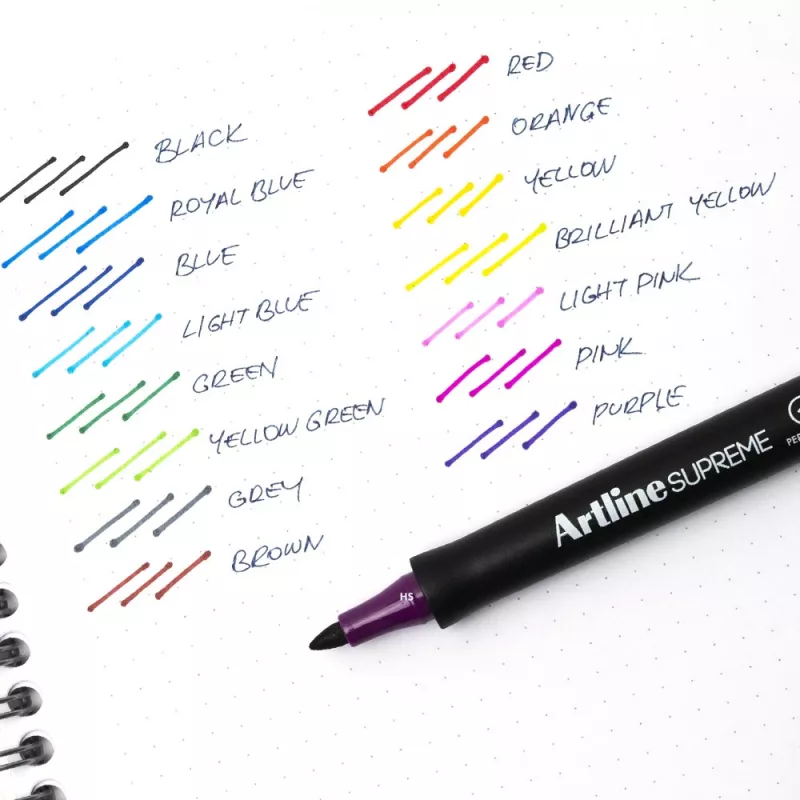 BLACK
ROYAL BLUE
BLUE
LIGHT BLUE
GREEN
YELLOW GREEN
GREY
BROWN
RED
ORANGE
YELLOW
BRILLIANT YELLOW
LIGHT PINK
PINK
PURPLE
Artline SUPREME
HS